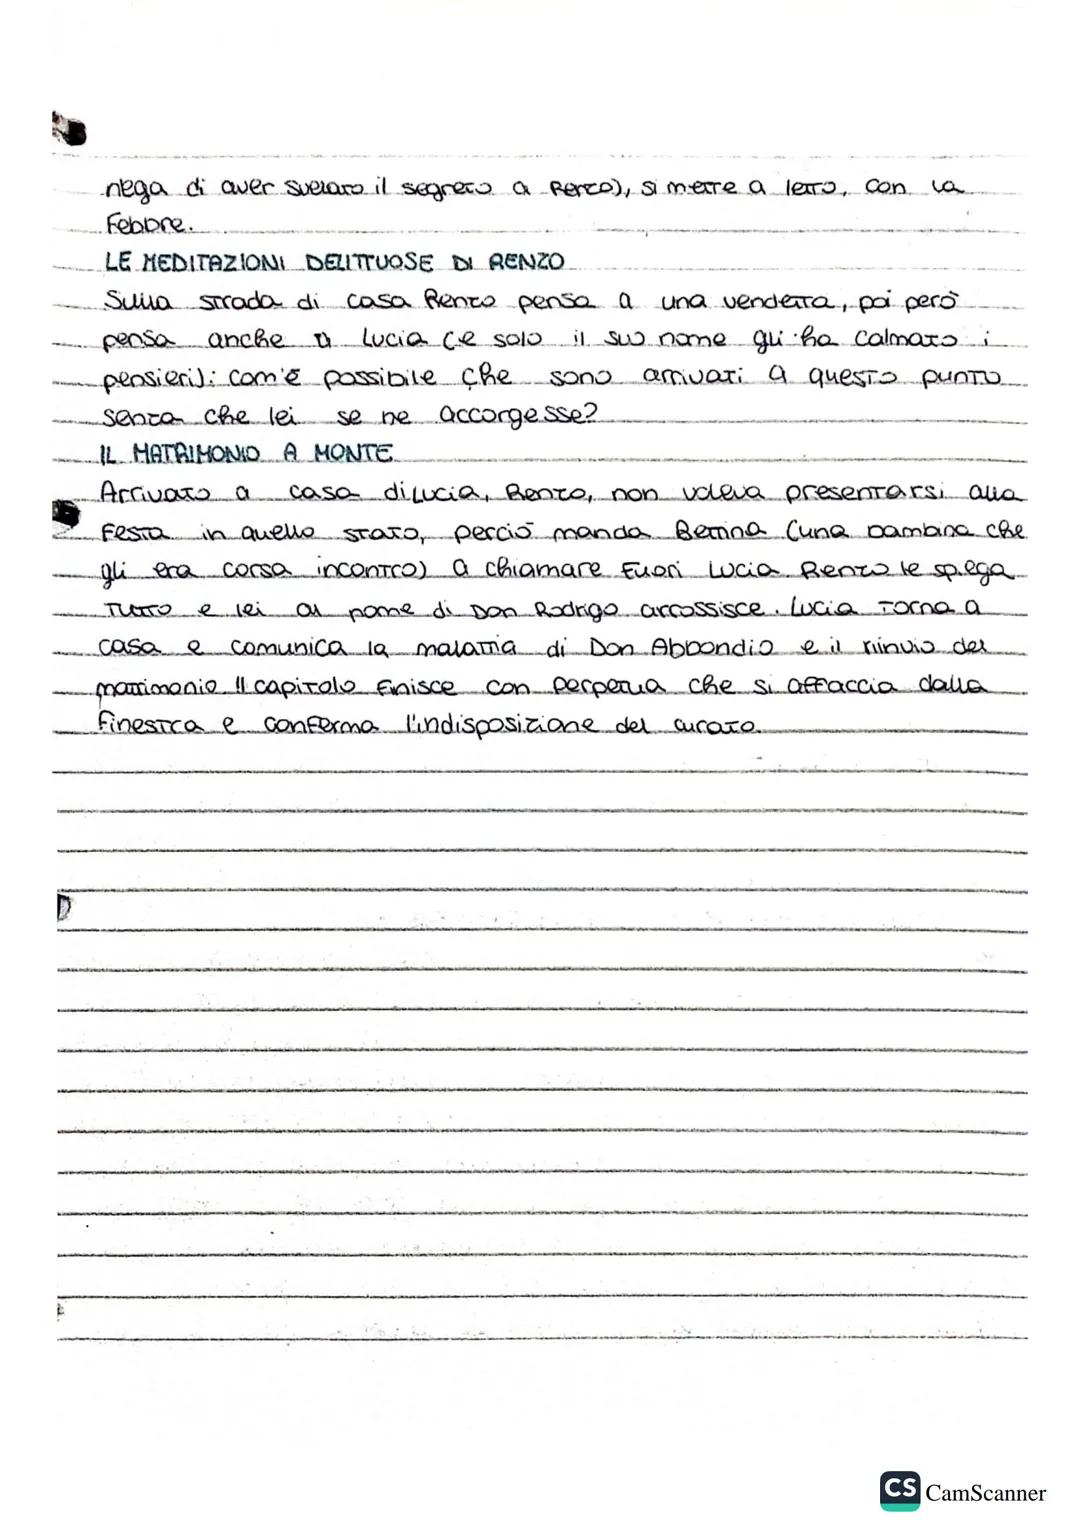 nega di aver svelato il segreto a Renzo), si mette a letto, con la
febbre.
LE MEDITAZIONI DELITTUOSE DI RENZO
Sulla strada di casa Renzo pensa a una vendetta, poi però
pensa anche a Lucia (e solo il suo nome gli ha calmato i
pensieri): com'è possibile che sono arrivati a questo punto
senza che lei se ne accorgesse?
IL MATRIMONIO A MONTE
Arrivato a casa di Lucia, Renzo, non voleva presentarsi alla
festa in quello stato, perciò manda Bettina (una bambina che
gli era corsa incontro) a chiamare fuori Lucia. Renzo le spiega
tutto e lei al nome di Don Rodrigo arrossisce. Lucia torna a
casa e comunica la malattia di Don Abbondio e il rinvio del
matrimonio Il capitolo finisce con perpetua che si affaccia dalla
finestra e conferma l'indisposizione del curato.
CS CamScanner